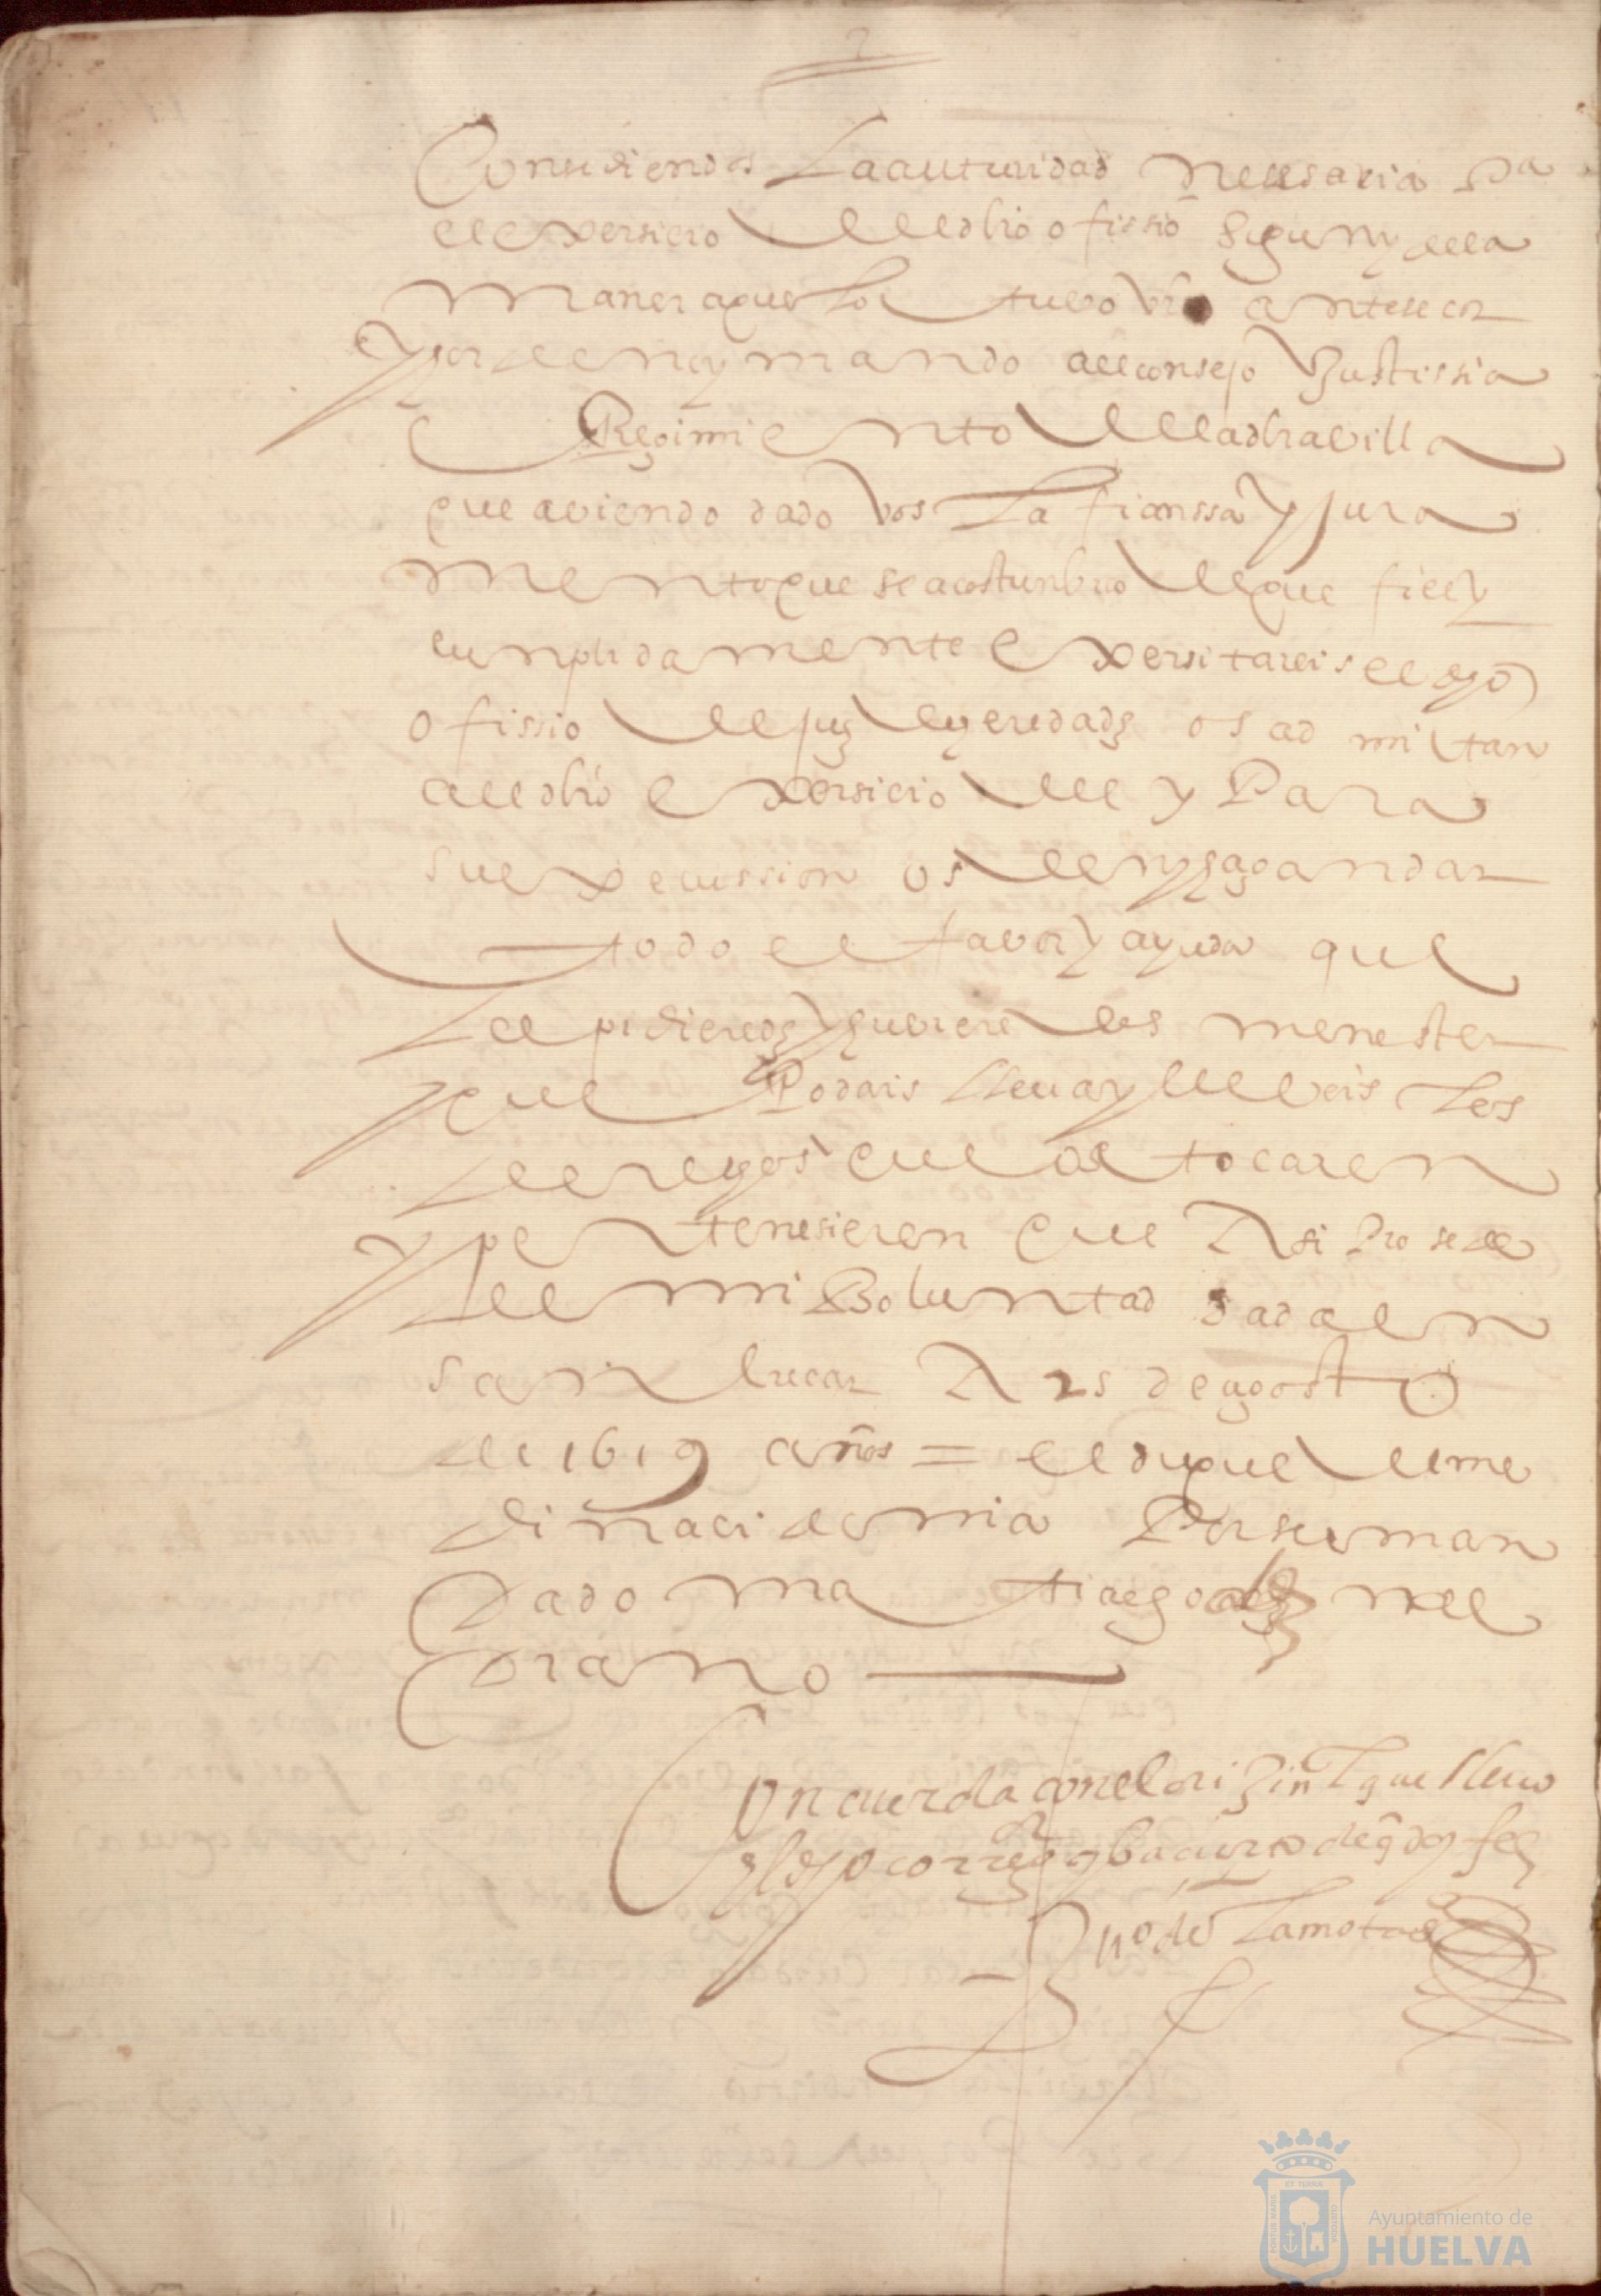 Consediendoos la auturidad nesesaria pa
el exersicio del dho offissio segun y de la
manera que lo tubo vro antesesor
y orden y mando al consejo Justissia
Regimiento de la dha villa
que aviendo dado vos la fianssa y jura
mento que se acostunbra de que fiel y
cunplidamente exersitareis el dho
offissio de juez de eredades os admitan
al dho exersicio de el y para
su execussion os den y hagan dar
todo el favor y ayuda que
le pidieredes y hubieredes menester
y que Podais llevar y lleveis los
derechos que os tocaren
y pertenesieren que Asi prosede
de mi Boluntad dada en
san lucar A 25 de agosto
de 1619 años = el duque de me
dina cidonia Por su man
dado matia gos mel
drano
Concuerda con el orizinal que llevo
el dho corregor
no de la mota
Ayuntamiento de
HUELVA